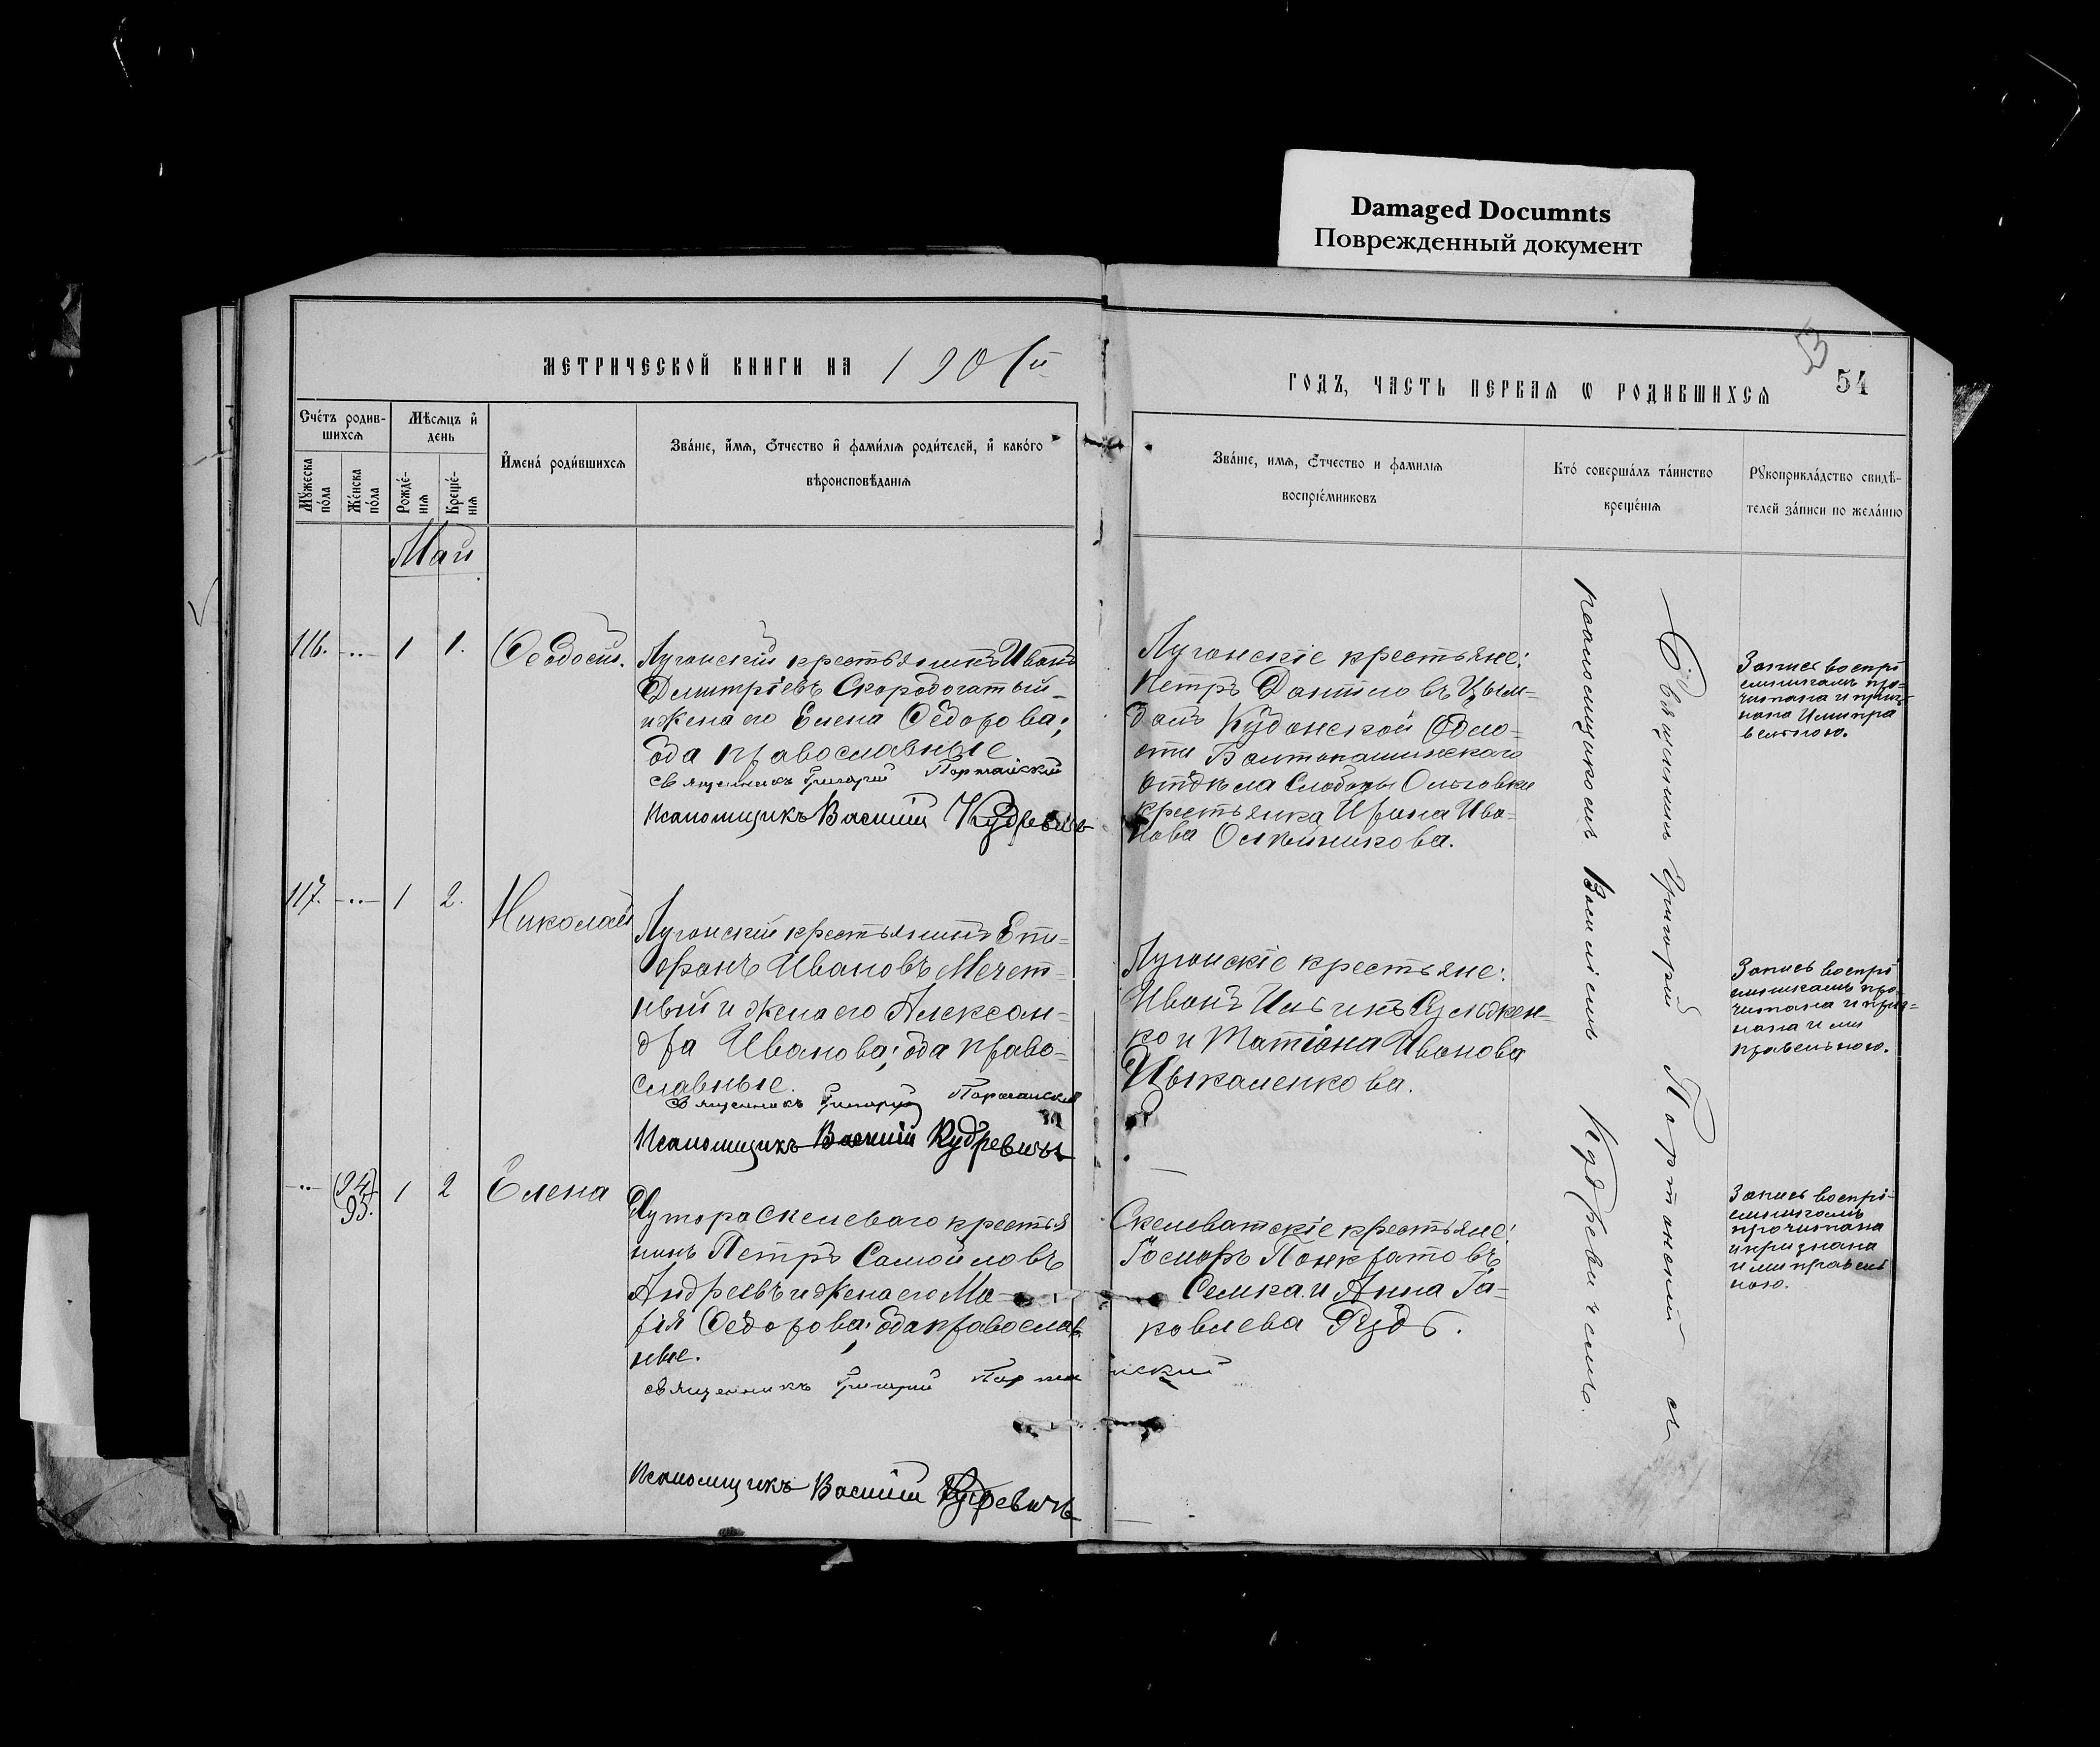 Damaged Documnts
Поврежденный документ
МЕТРИЧЕСКОЙ КНИГИ НА 190
ГОДЪ, ЧАСТЬ ПЕРВАЯ Ѡ РОДИВШИХСЯ
53
54
Счетъ родив-
шихся
Мѣсяцъ и
день
Мужеска
пола
Женска
пола
Рожде-
нія
Креще-
нія
Имена родившихся
Званіе, имя, отчество и фамилія родителей, и какого
вѣроисповѣданія
Званіе, имя, отчество и фамилія
воспріемниковъ
Кто совершалъ таинство
крещенія
Рукоприкладство свидѣ-
телей записи по желанію
Май
116. 1 1. Ѳеодосій.
Луганскій крестьянинъ Иванъ
Димитріевъ Скородогатый
и жена его Елена Ѳедорова;
оба православные
Священникъ Григорій
Псаломщикъ Василій Кудревичъ
Луганскіе крестьяне:
Петръ
Кубанской Обла-
сти
отдѣла Слободы Ольговки
крестьянка Ирина Ива-
нова Олѣйникова.
Запись воспрі
емниками про-
читана и приз-
нана ими пра
вельною.
117. 1 2. Николай
Луганскій крестьянинъ Епи-
фанъ Ивановъ Мечет-
ный и жена его Алексан-
дра Иванова; оба право-
славные.
Священникъ Григорій
Псаломщикъ Василій Кудревичъ
Луганскіе крестьяне:
Иванъ
ко и Татіана Иванова
Цыкаленкова.
Запись воспрі
емниками про-
читана и приз-
нана ими
правельною.
(94)
95. 1 2 Елена
Хутора Скелеваго крестья
нинъ Петръ Самойловъ
Андреевъ и жена его Ма-
рія Ѳедорова; оба православ
ные.
Священникъ Григорій
Псаломщикъ Василій Кудревичъ
Скелеватскіе крестьяне:
Іосифъ Панкратовъ
Семка и Анна Іа-
ковлева
Запись воспрі-
емниками
прочитана
и признана
ими правель
ною.
Священникъ Григорій съ
псаломщикомъ Василіемъ Кудревичемъ.